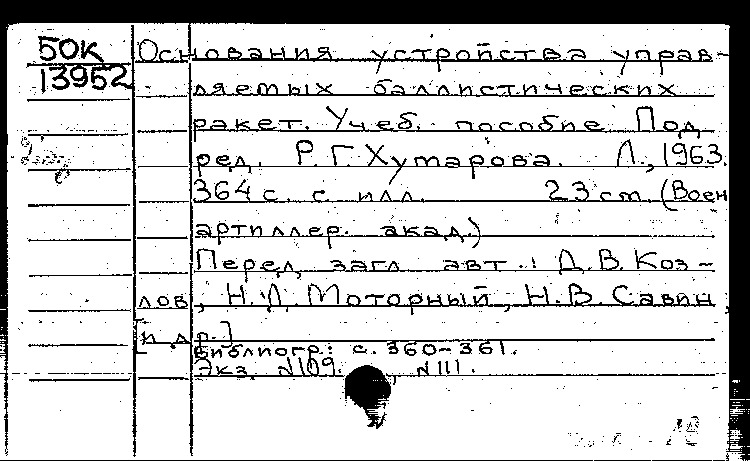 50К Основания устройства управ-
13952 ляемых баллистических
ракет. Учеб. пособие Под
ред. Р.Г. Хутарова. Л., 1963.
364 с. с илл. 23 см. (Воен
артиллер. акад.)
Перед загл авт.: Д.В. Коз-
лов, Н.Л. Моторный, Н.В. Савин,
[и др.]
Библиогр: с. 360-361.
Экз. №109. , №111.